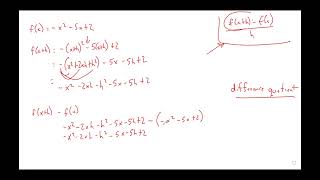 f(x) = -x² - 5x + 2
f(x+h) = -(x+h)² - 5(x+h) + 2
= -(x² + 2xh + h²) - 5x - 5h + 2
= -x² - 2xh - h² - 5x - 5h + 2
f(x+h) - f(x)
h
difference quotient
f(x+h) - f(x)
-x² - 2xh - h² - 5x - 5h + 2 - (-x² - 5x + 2)
-x² - 2xh - h² - 5x - 5h + 2